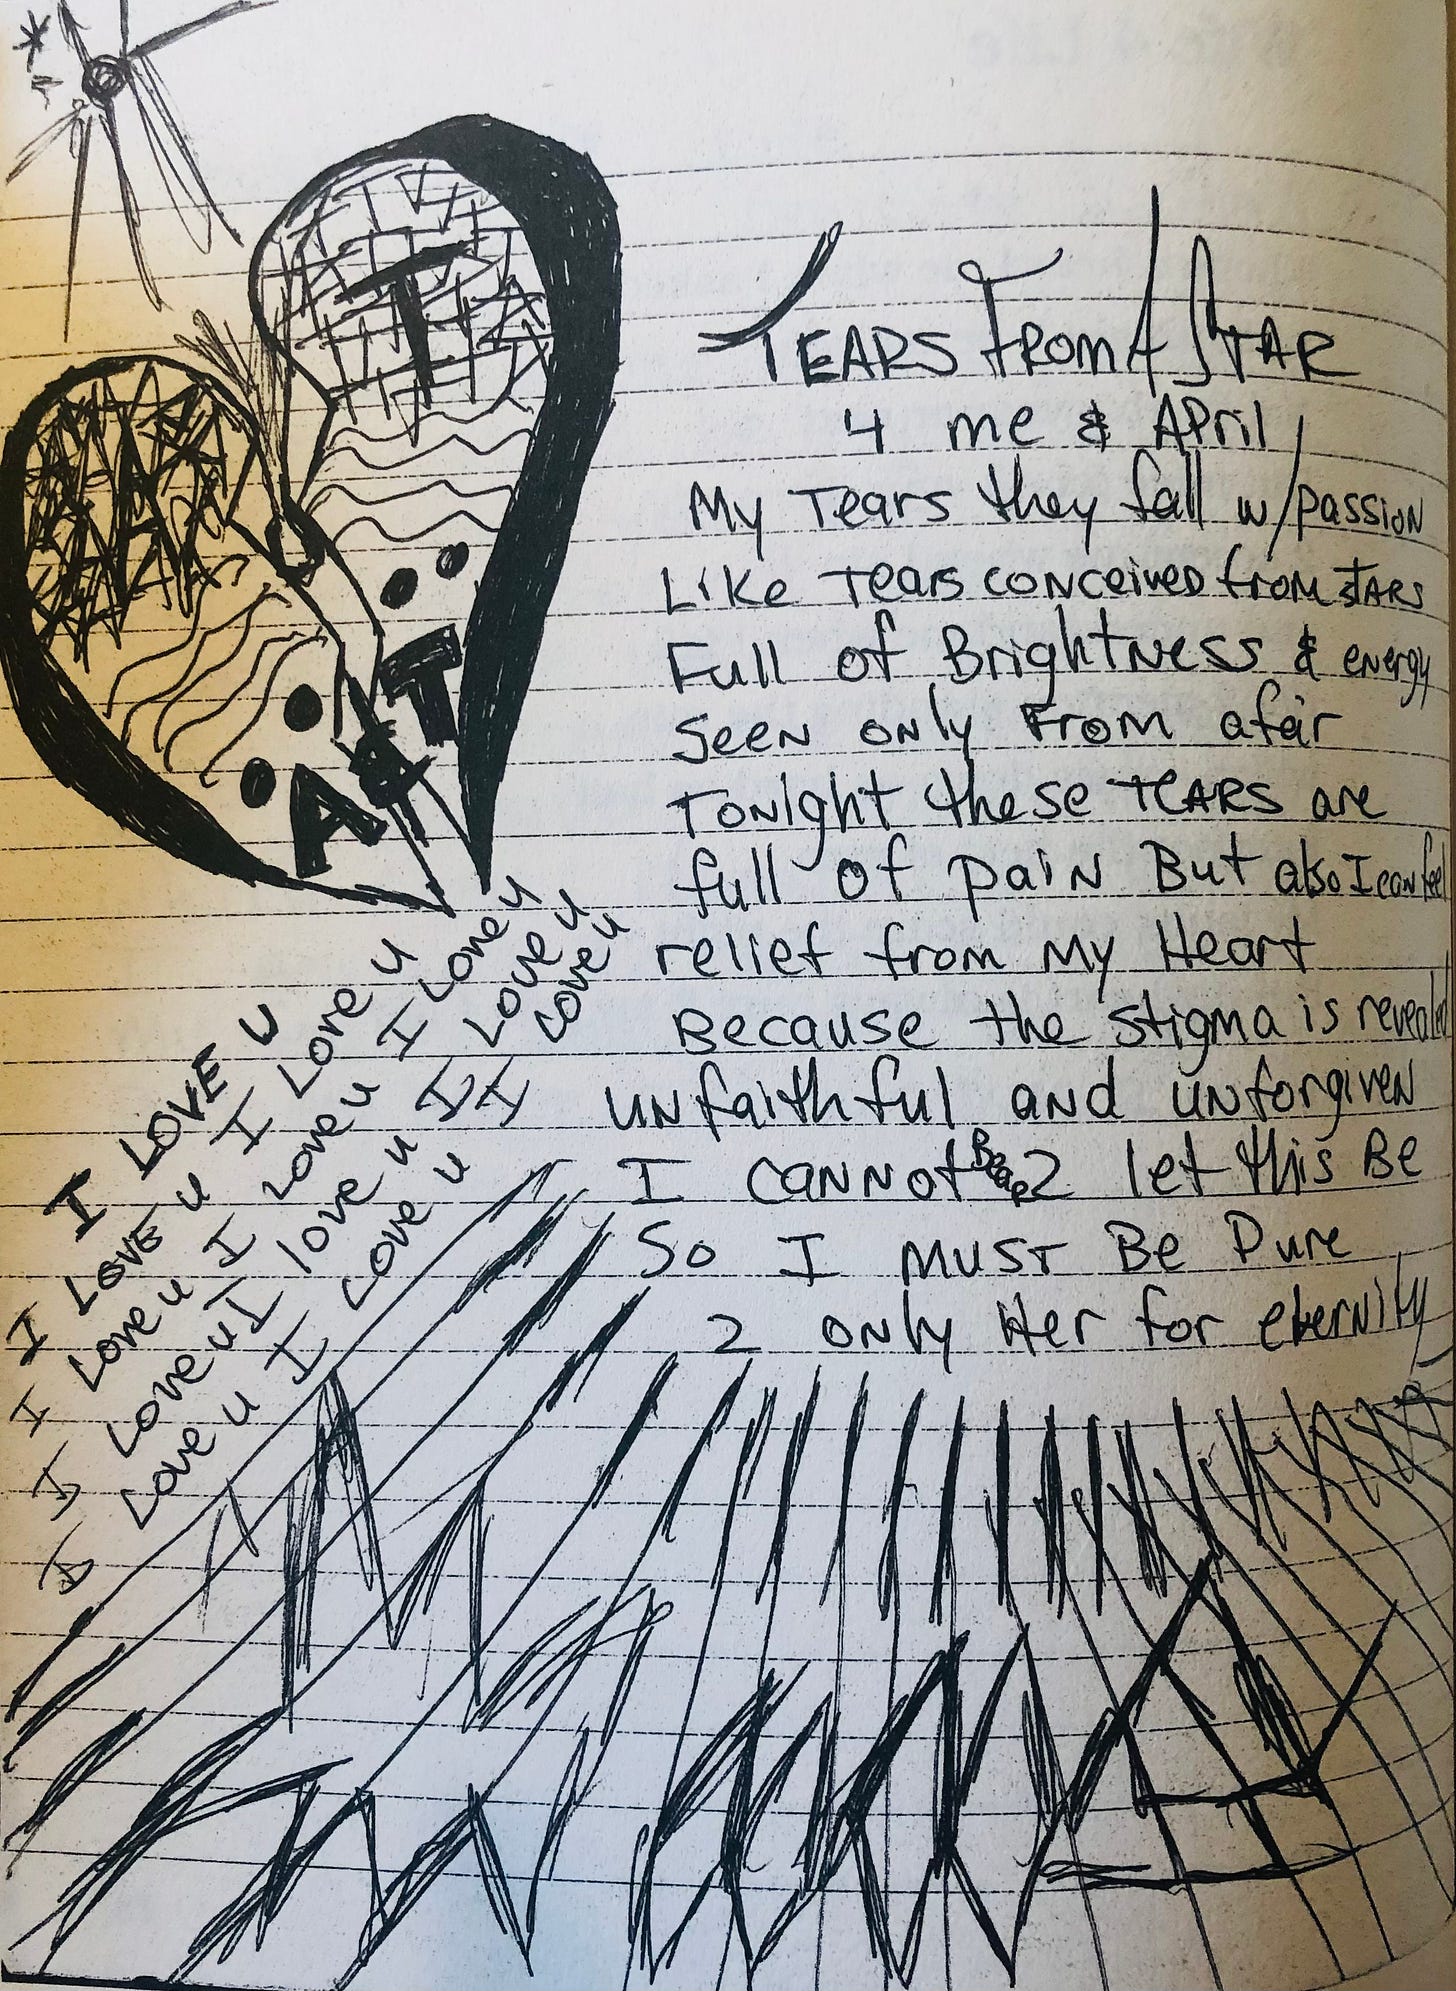 TEARS FROM A STAR
4 me & APril
My Tears they fall w/passion
Like Tears conceived from STARS
Full of Brightness & energy
Seen only From afar
Tonight these TEARS are
full of pain But also I can feel
relief from My Heart
Because the stigma is revealed
unfaithful and unforgiven
I cannot 2 let this Be
So I must Be Pure
2 only Her for eternity
T
A
A & T
I LOVE u
I LOVE u I Love u
I Love u I Love u I Love u
I Love u I love u I Love u
I Love u I Love u I Love u